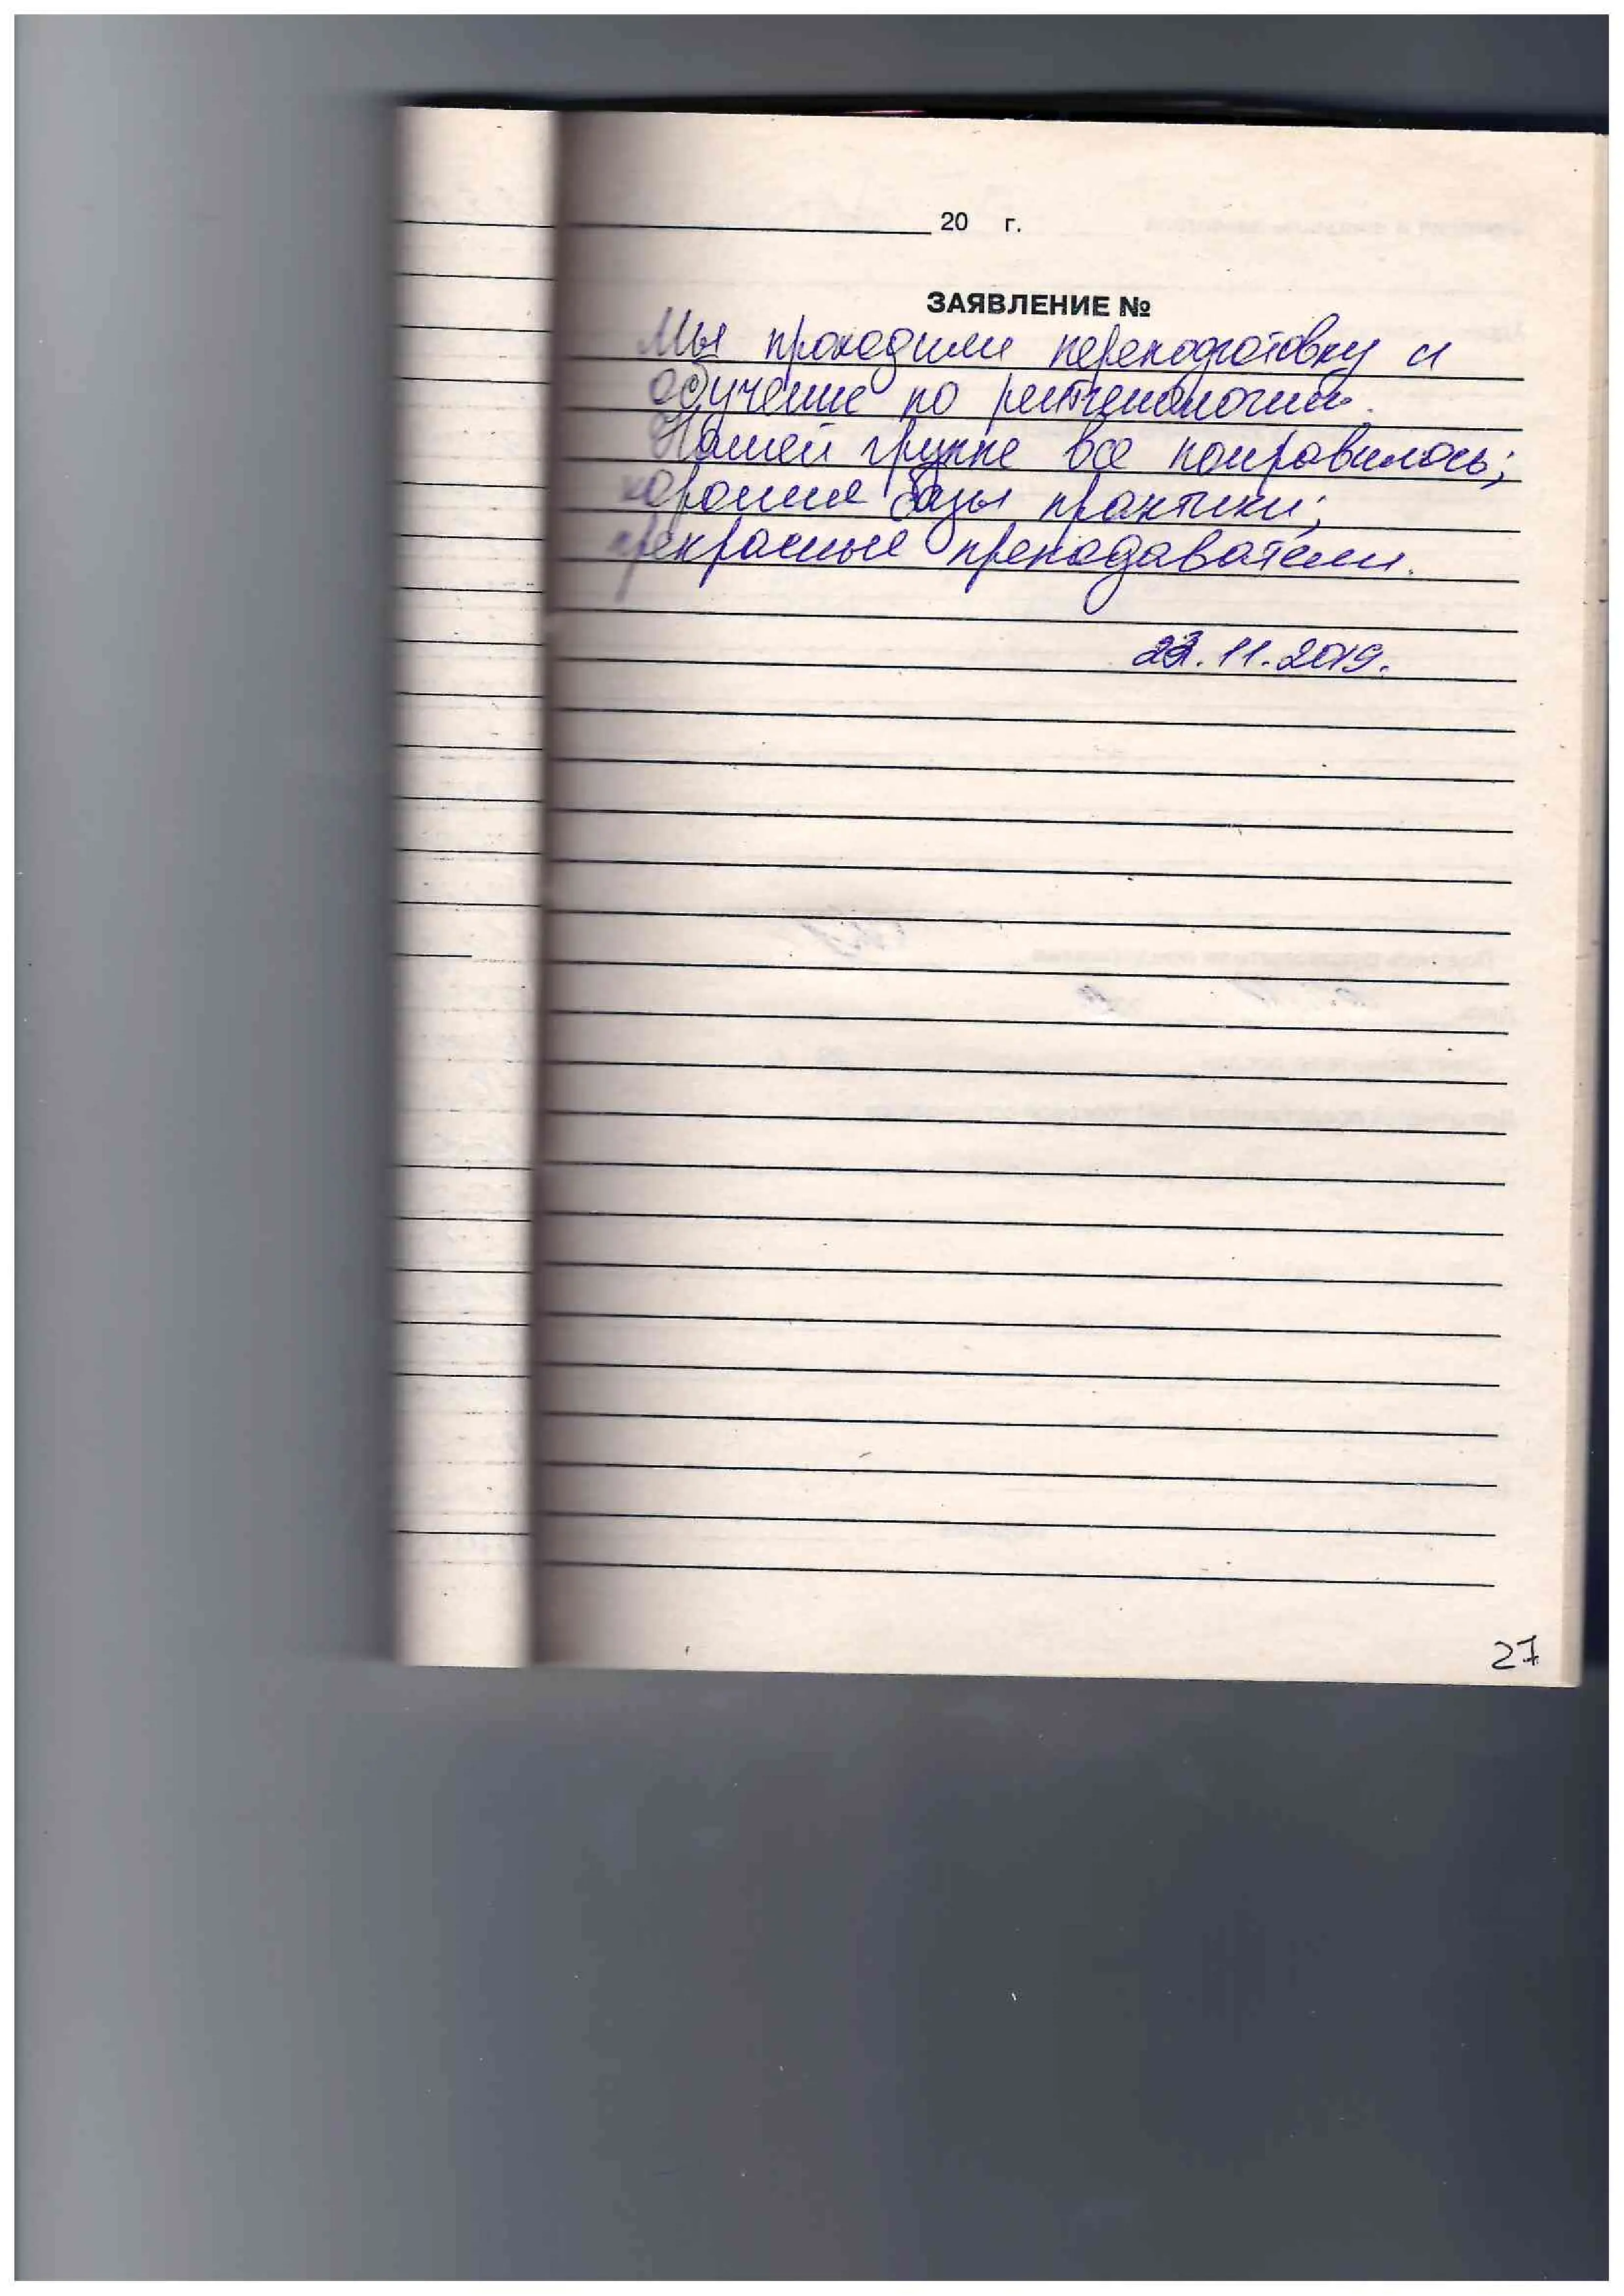 20 г.
ЗАЯВЛЕНИЕ №
Мы проходили переподготовку и
обучение по рентгенологии.
Нашей группе все понравилось;
хорошие базы практики;
прекрасные преподаватели.
.11.2019.
27